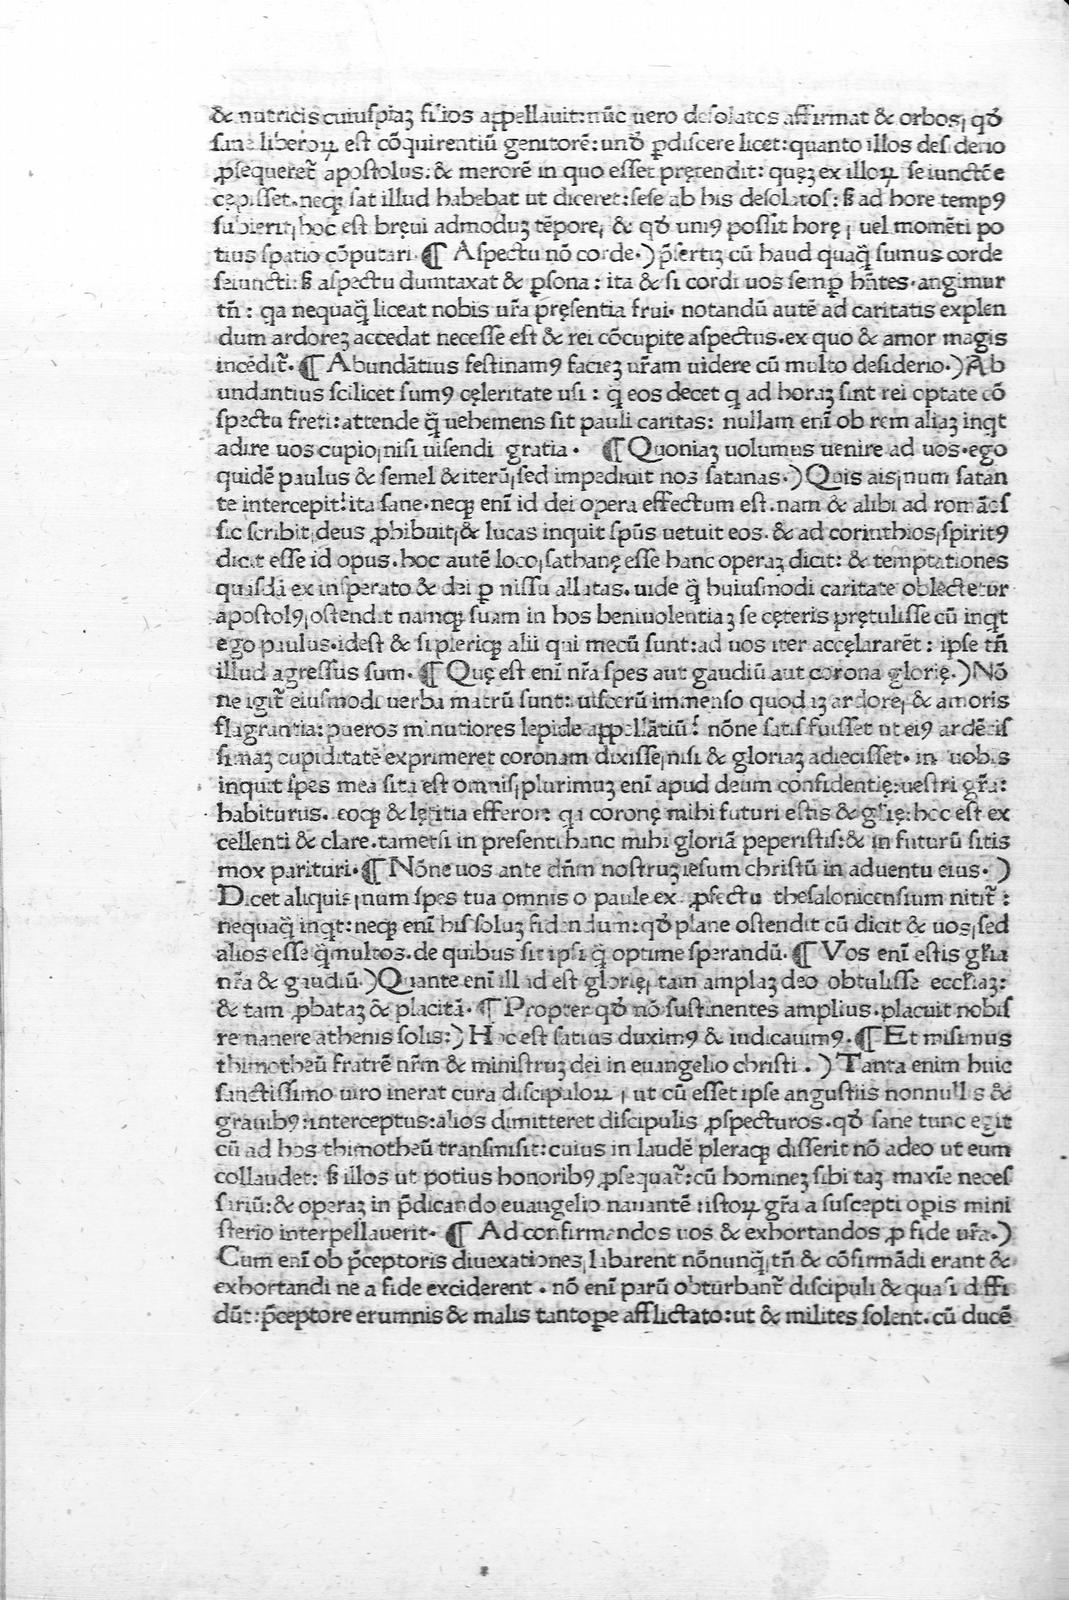 & nutricis cuiuſpiaꝫ filios appellauit:nūc uero deſolatos affirmat & orbos, qđ
ſane liberoꝝ eſt cōquirentiū genitorē:unđ ꝑdiſcere licet:quanto illos deſiderio
ꝓſequeret̃ apoſtolus.& merorē in quo eſſet prętendit: quęꝫ ex illoꝝ ſeiunctōe
cępiſſet.neqꝫ ſat illud habebat ut diceret:ſeſe ab his deſolatoſ: ẞ ad hore tempꝰ
ſubierit,hoc eſt bręui admoduꝫ tēpore, & qđ uniꝰ poſſit horę, uel momēti po
tius ſpatio cōputari.¶ Aſpectu nō corde.) p̄ſertiꝫ cū haud quaq̄ ſumus corde
ſeiuncti: ẞ aſpectu dumtaxat & ꝑſona: ita & ſi cordi uos ſemꝑ hñtes.angimur
tñ: qa nequaq̄ liceat nobis ur̃a pręſentia frui. notandū autē ad caritatis explen
dum ardoreꝫ accedat neceſſe eſt & rei cōcupite aſpectus.ex quo & amor magis
incēdit̃.¶ Abundātius feſtinamꝰ facieꝫ ur̃am uidere cū multo deſiderio.)Ab
undantius ſcilicet ſumꝰ cęleritate uſi: q̄ eos decet q ad horaꝫ ſint rei optate cō
ſpectu freti:attende q̄ uehemens ſit pauli caritas: nullam enī ob rem aliaꝫ inqt
adire uos cupio,niſi uiſendi gratia. ¶Quoniaꝫ uolumus uenire ad uos.ego
quidē paulus & ſemel & iterū,ſed impediuit nos ſatanas.)Quis ais,num ſatan
te intercepit?ita ſane.neqꝫ enī id dei opera effectum eſt.nam & alibi ad romāos
ſic ſcribit,deus ꝓhibuit,& lucas inquit ſpūs uetuit eos. & ad corinthios,ſpiritꝰ
dicit eſſe id opus.hoc autē loco,ſathanę eſſe hanc operaꝫ dicit: & temptationes
quaſdā ex inſperato & dei ꝑmiſſu allatas.uide q̄ huiuſmodi caritate oblectetur
apoſtolꝰ,oſtendit namqꝫ ſuam in hos beniuolentiaꝫ ſe cęteris prętuliſſe cū inqt
ego paulus.ideſt & ſi pleriqꝫ alii qui mecū ſunt:ad uos iter accęlararēt: ipſe tñ
illud agreſſus ſum. ¶Quę eſt enī nr̃a ſpes aut gaudiū aut corona glorię.)Nō
ne igit̃ eiuſmodi uerba matrū ſunt: uiſcerū immenſo quodaꝫ ardore, & amoris
flagrantia: pueros minutiores lepide appellātiū? nōne ſatiſ fuiſſet ut eiꝰ ardētiſ
ſimaꝫ cupiditatē exprimeret coronam dixiſſe,niſi & gloriaꝫ adieciſſet.in uobis
inquit ſpes mea ſita eſt omniſ,plurimuꝫ enī apud deum confidentię:ueſtri gr̃a:
habiturus. eoqꝫ & lętitia efferor: qa coronę mihi futuri eſtis & glię:hoc eſt ex
cellenti & clare.tametſi in preſenti hanc mihi gloriā peperiſtiſ:& in futurū ſitis
mox parituri.¶Nōne uos ante dñm noſtruꝫ ieſum chriſtū in aduentu eius.)
Dicet aliquis,num ſpes tua omnis o paule ex ꝓfectu theſalonicenſium nitit̃:
nequaq̄ inqt:neqꝫ enī his ſoluꝫ fidendum:qđ plane oſtendit cū dicit & uos,ſed
alios eſſe q̄multos.de quibus ſit ipſi q̄ optime ſperandū.¶ Vos enī eſtis glr̃ia
nr̃a & gaudiū.)Quante enī illud eſt glorię, tam amplaꝫ deo obtuliſſe eccliaꝫ:
& tam ꝓbataꝫ & placitā.¶Propter qđ nō ſuſtinentes amplius.placuit nobiſ
remanere athenis ſolis:)Hoc eſt ſatius duximꝰ & iudicauimꝰ.¶Et miſimus
thimotheū fratrē nr̃m & miniſtruꝫ dei in euangelio chriſti.)Tanta enim huic
ſanctiſſimo uiro inerat cura diſcipuloꝝ, ut cū eſſet ipſe anguſtiis nonnullis &
grauibꝰ:interceptus:alios dimitteret diſcipulis ꝓſpecturos.qđ ſane tunc egit
cū ad hos thimotheū tranſmiſit:cuius in laudē pleraqꝫ differit nō adeo ut eum
collaudet: ẞ illos ut potius honoribꝰ ꝓſequat̃:cū homineꝫ ſibi taꝫ maxīe neceſ
ſariū:& operaꝫ in p̄dicando euangelio nauantē iſtoꝝ gr̃a a ſuſcepti opis mini
ſterio interpellauerit.¶ Ad confirmandos uos & exhortandos ꝓ fide ur̃a.)
Cum enī ob p̄ceptoris diuexationes,labarent nōnunq̄,tñ & cōfirmādi erant &
exhortandi ne a fide exciderent.nō enī parū obturbant̃ diſcipuli & quaſi diffi
dūt:p̄ceptore erumnis & malis tantoꝑe afflictato:ut & milites ſolent.cū ducē